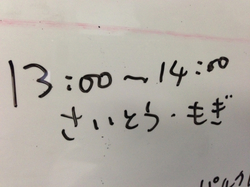 13:00〜14:00
さいとう・もぎ